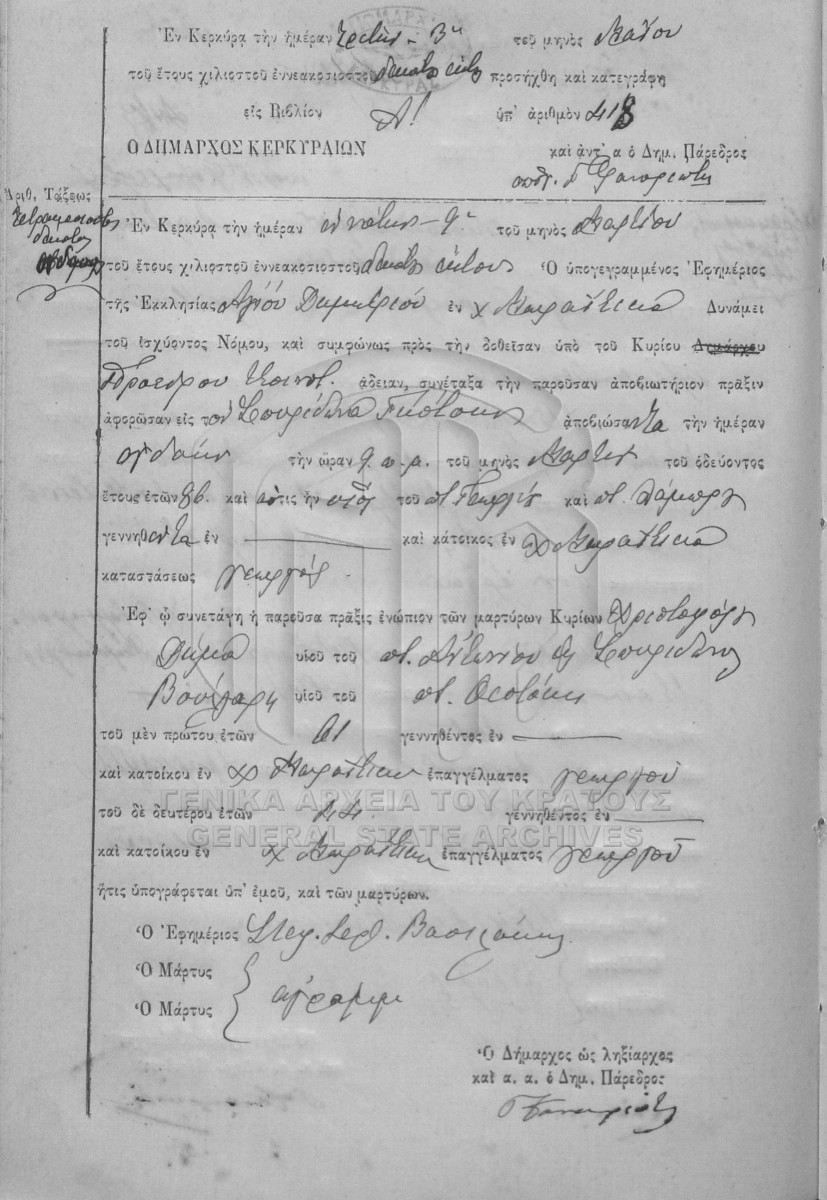 Ἐν Κερκύρᾳ τὴν ἡμέραν τρίτην - 3ην τοῦ μηνὸς Μαΐου
τοῦ ἔτους χιλιοστοῦ ἐννεακοσιοστοῦ δεκάτου ἕκτου προσήχθη καὶ κατεγράφη
εἰς Βιβλίον Α! ὑπ' ἀριθμὸν 418
Ο ΔΗΜΑΡΧΟΣ ΚΕΡΚΥΡΑΙΩΝ καὶ ἀντ' α ὁ Δημ. Πάρεδρος
Ἀριθ. Τάξεως
Τετρακοσιοστὸς
δέκατος
ὄγδοος
Ἐν Κερκύρᾳ τὴν ἡμέραν ἐννάτην - 9ην τοῦ μηνὸς Μαρτίου
τοῦ ἔτους χιλιοστοῦ ἐννεακοσιοστοῦ δεκάτου ἕκτου Ὁ ὑπογεγραμμένος Ἐφημέριος
τῆς Ἐκκλησίας Ἁγίου Δημητρίου ἐν χ Δυνάμει
τοῦ ἰσχύοντος Νόμου, καὶ συμφώνως πρὸς τὴν δοθεῖσαν ὑπὸ τοῦ Κυρίου Δημάρχου
Προέδρου Κοινότ. ἄδειαν, συνέταξα τὴν παροῦσαν ἀποβιωτήριον πρᾶξιν
ἀφορῶσαν εἰς τὸν Σπυρίδωνα ἀποβιώσαντα τὴν ἡμέραν
ὀγδόην τὴν ὥραν 9 π.μ. τοῦ μηνὸς Μαρτίου τοῦ ὁδεύοντος
ἔτους ἐτῶν καὶ ὅστις ἦν υἱὸς τοῦ ποτ. Γεωργίου καὶ ποτ.
γεννηθέντα ἐν καὶ κάτοικος ἐν χ
καταστάσεως γεωργός.
Ἐφ' ᾧ συνετάγη ἡ παροῦσα πρᾶξις ἐνώπιον τῶν μαρτύρων Κυρίων Χριστοφόρου
υἱοῦ τοῦ ποτ. Ἀντωνίου & Σπυρίδωνος
Βούλγαρη υἱοῦ τοῦ ποτ. Θεοτόκη
τοῦ μὲν πρώτου ἐτῶν 61 γεννηθέντος ἐν
καὶ κατοίκου ἐν χ ἐπαγγέλματος γεωργοῦ
τοῦ δὲ δευτέρου ἐτῶν 44 γεννηθέντος ἐν
καὶ κατοίκου ἐν χ ἐπαγγέλματος γεωργοῦ
ἥτις ὑπογράφεται ὑπ' ἐμοῦ, καὶ τῶν μαρτύρων.
Ὁ Ἐφημέριος
Ὁ Μάρτυς
Ὁ Μάρτυς ἀγράμμ
Ὁ Δήμαρχος ὡς ληξίαρχος
καὶ α. α. ὁ Δημ. Πάρεδρος
ΓΕΝΙΚΑ ΑΡΧΕΙΑ ΤΟΥ ΚΡΑΤΟΥΣ
GENERAL STATE ARCHIVES